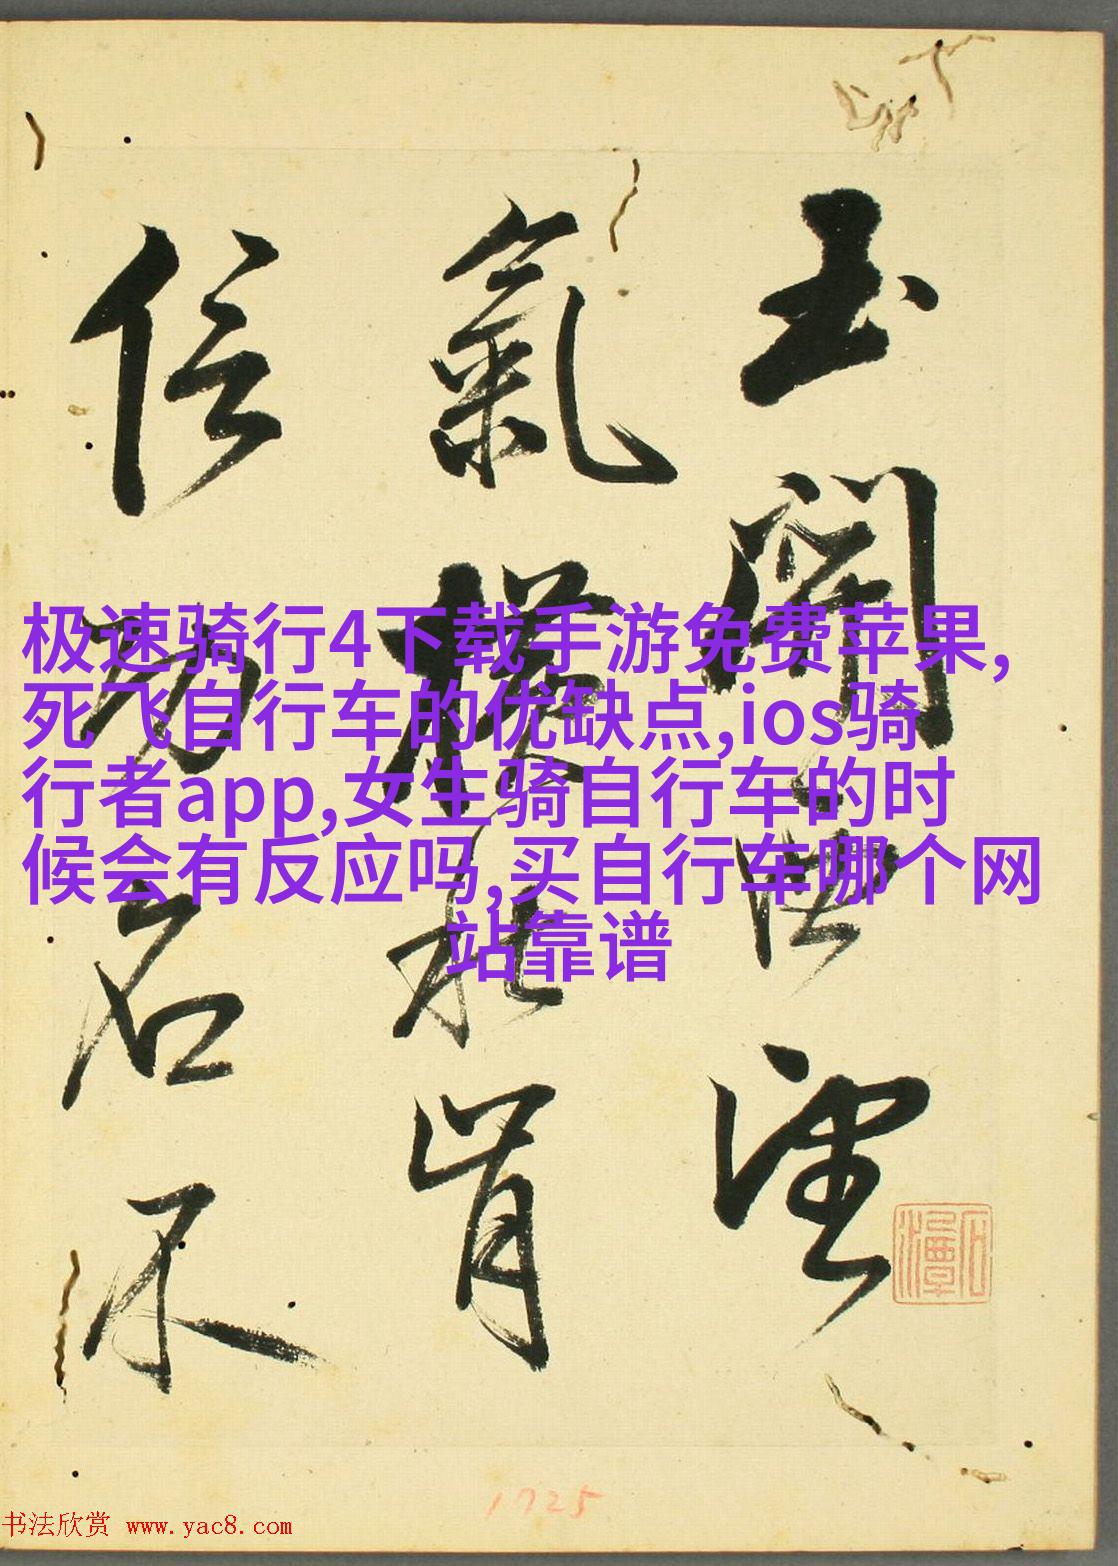 玉關望
氣橫秋肯
信功名不
极速骑行4下载手游免费苹果,
死飞自行车的优缺点,ios骑
行者app,女生骑自行车的时
候会有反应吗,买自行车哪个网
站靠谱
1725
书法欣赏 www.yac8.com